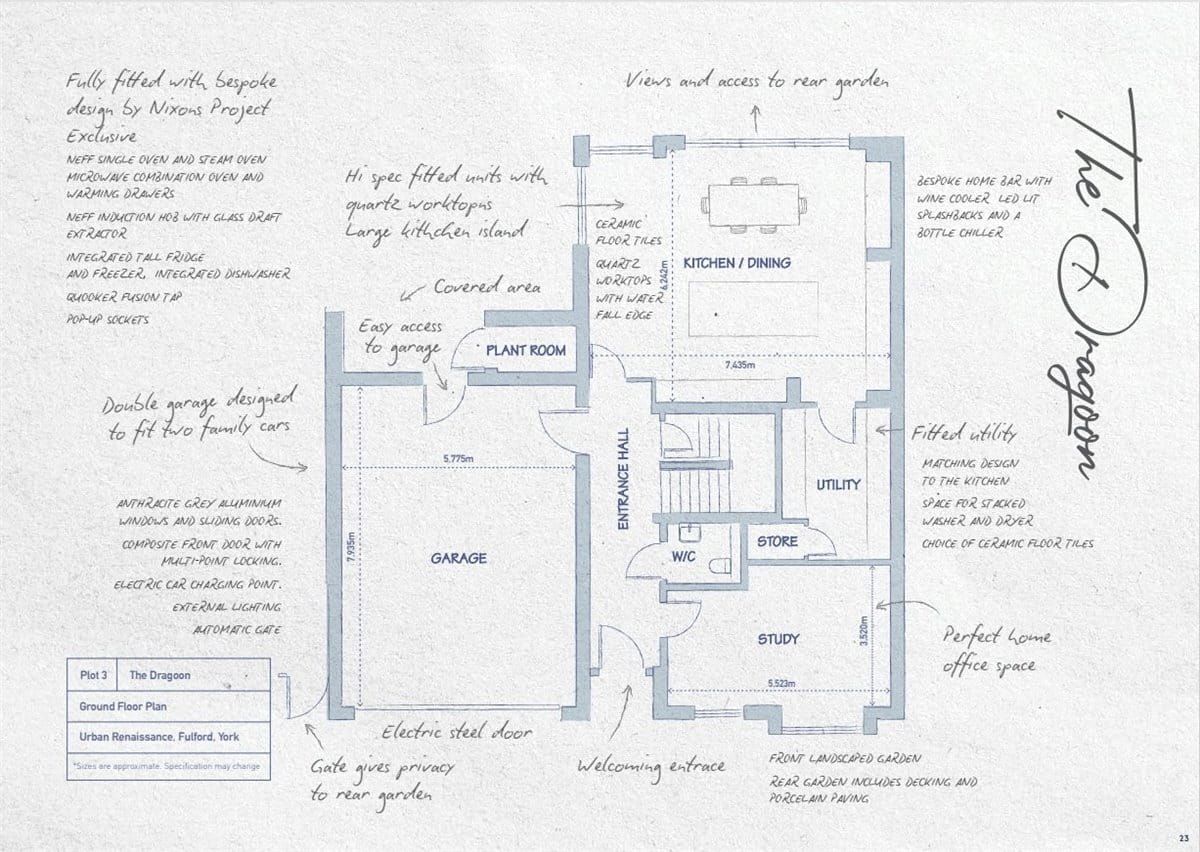 Fully fitted with bespoke
design by Nixons Project
Exclusive
NEFF SINGLE OVEN AND STEAM OVEN
MICROWAVE COMBINATION OVEN AND
WARMING DRAWERS
NEFF INDUCTION HOB WITH GLASS DRAFT
EXTRACTOR
INTEGRATED TALL FRIDGE
AND FREEZER, INTEGRATED DISHWASHER
QUOOKER FUSION TAP
POP-UP SOCKETS
Views and access to rear garden
Hi spec fitted units with
quartz worktopns
Large kithchen island
CERAMIC
FLOOR TILES
QUARTZ
WORKTOPS
WITH WATER
FALL EDGE
6,242m
KITCHEN / DINING
7,435m
BESPOKE HOME BAR WITH
WINE COOLER LED LIT
SPLASHBACKS AND A
BOTTLE CHILLER
The Dragoon
Covered area
Easy access
to garage
PLANT ROOM
Double garage designed
to fit two family cars
5,775m
7,935m
GARAGE
ENTRANCE HALL
Fitted utility
MATCHING DESIGN
TO THE KITCHEN
SPACE FOR STACKED
WASHER AND DRYER
CHOICE OF CERAMIC FLOOR TILES
UTILITY
STORE
W/C
ANTHRACITE GREY ALUMINIUM
WINDOWS AND SLIDING DOORS.
COMPOSITE FRONT DOOR WITH
MULTI-POINT LOCKING.
ELECTRIC CAR CHARGING POINT.
EXTERNAL LIGHTING
AUTOMATIC GATE
STUDY
3,520m
5,523m
Perfect home
office space
Plot 3 The Dragoon
Ground Floor Plan
Urban Renaissance, Fulford, York
*Sizes are approximate. Specification may change
Electric steel door
Gate gives privacy
to rear garden
Welcoming entrace
FRONT LANDSCAPED GARDEN
REAR GARDEN INCLUDES DECKING AND
PORCELAIN PAVING
23